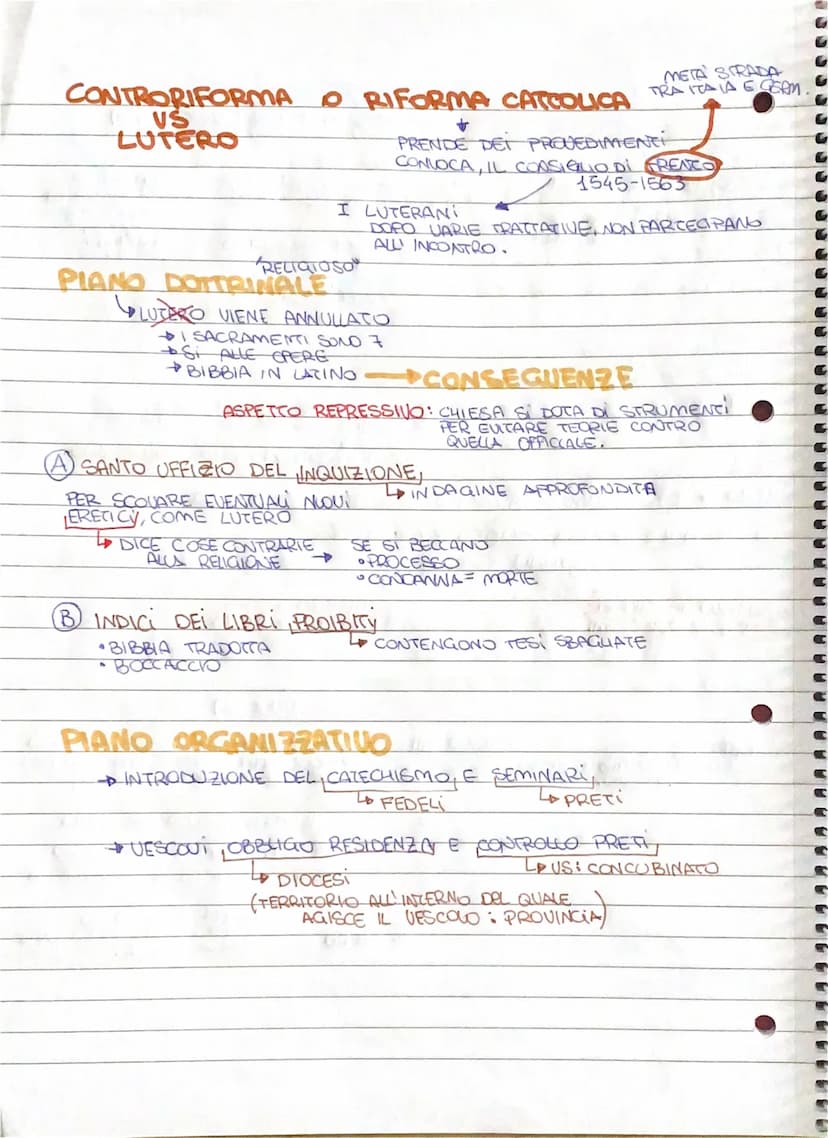 CONTRORIFORMA O RIFORMA CATTOLICA
VS
LUTERO
METÀ STRADA
TRA ITALIA E GERM.
PRENDE DEI PROVEDIMENTI
CONVOCA, IL CONSIGLIO DI TRENTO
1545-1563
I LUTERANI
DOPO VARIE TRATTATIVE, NON PARTECIPANO
ALL'INCONTRO.
"RELIGIOSO"
PIANO DOTTRINALE
LUTERO VIENE ANNULLATO
I SACRAMENTI SONO 7
SI ALLE OPERE
BIBBIA IN LATINO → CONSEGUENZE
ASPETTO REPRESSIVO: CHIESA SI DOTA DI STRUMENTI
PER EVITARE TEORIE CONTRO
QUELLA OFFICIALE.
A SANTO UFFIZIO DEL INQUIZIONE
INDAGINE APPROFONDITA
PER SCOVARE EVENTUALI NUOVI
ERETICI, COME LUTERO
DICE COSE CONTRARIE
ALLA RELIGIONE →
SE SI BECCANO
• PROCESSO
• CONDANNA = MORTE
B INDICI DEI LIBRI PROIBITI
• BIBBIA TRADOTTA
CONTENGONO TESI SBAGLIATE
• BOCCACCIO
PIANO ORGANIZZATIVO
→ INTRODUZIONE DEL CATECHISMO E SEMINARI
FEDELI
PRETI
→ VESCOVI OBBLIGO RESIDENZA E CONTROLLO PRETI
VS: CONCUBINATO
DIOCESI
(TERRITORIO ALL'INTERNO DEL QUALE
AGISCE IL VESCOVO: PROVINCIA)